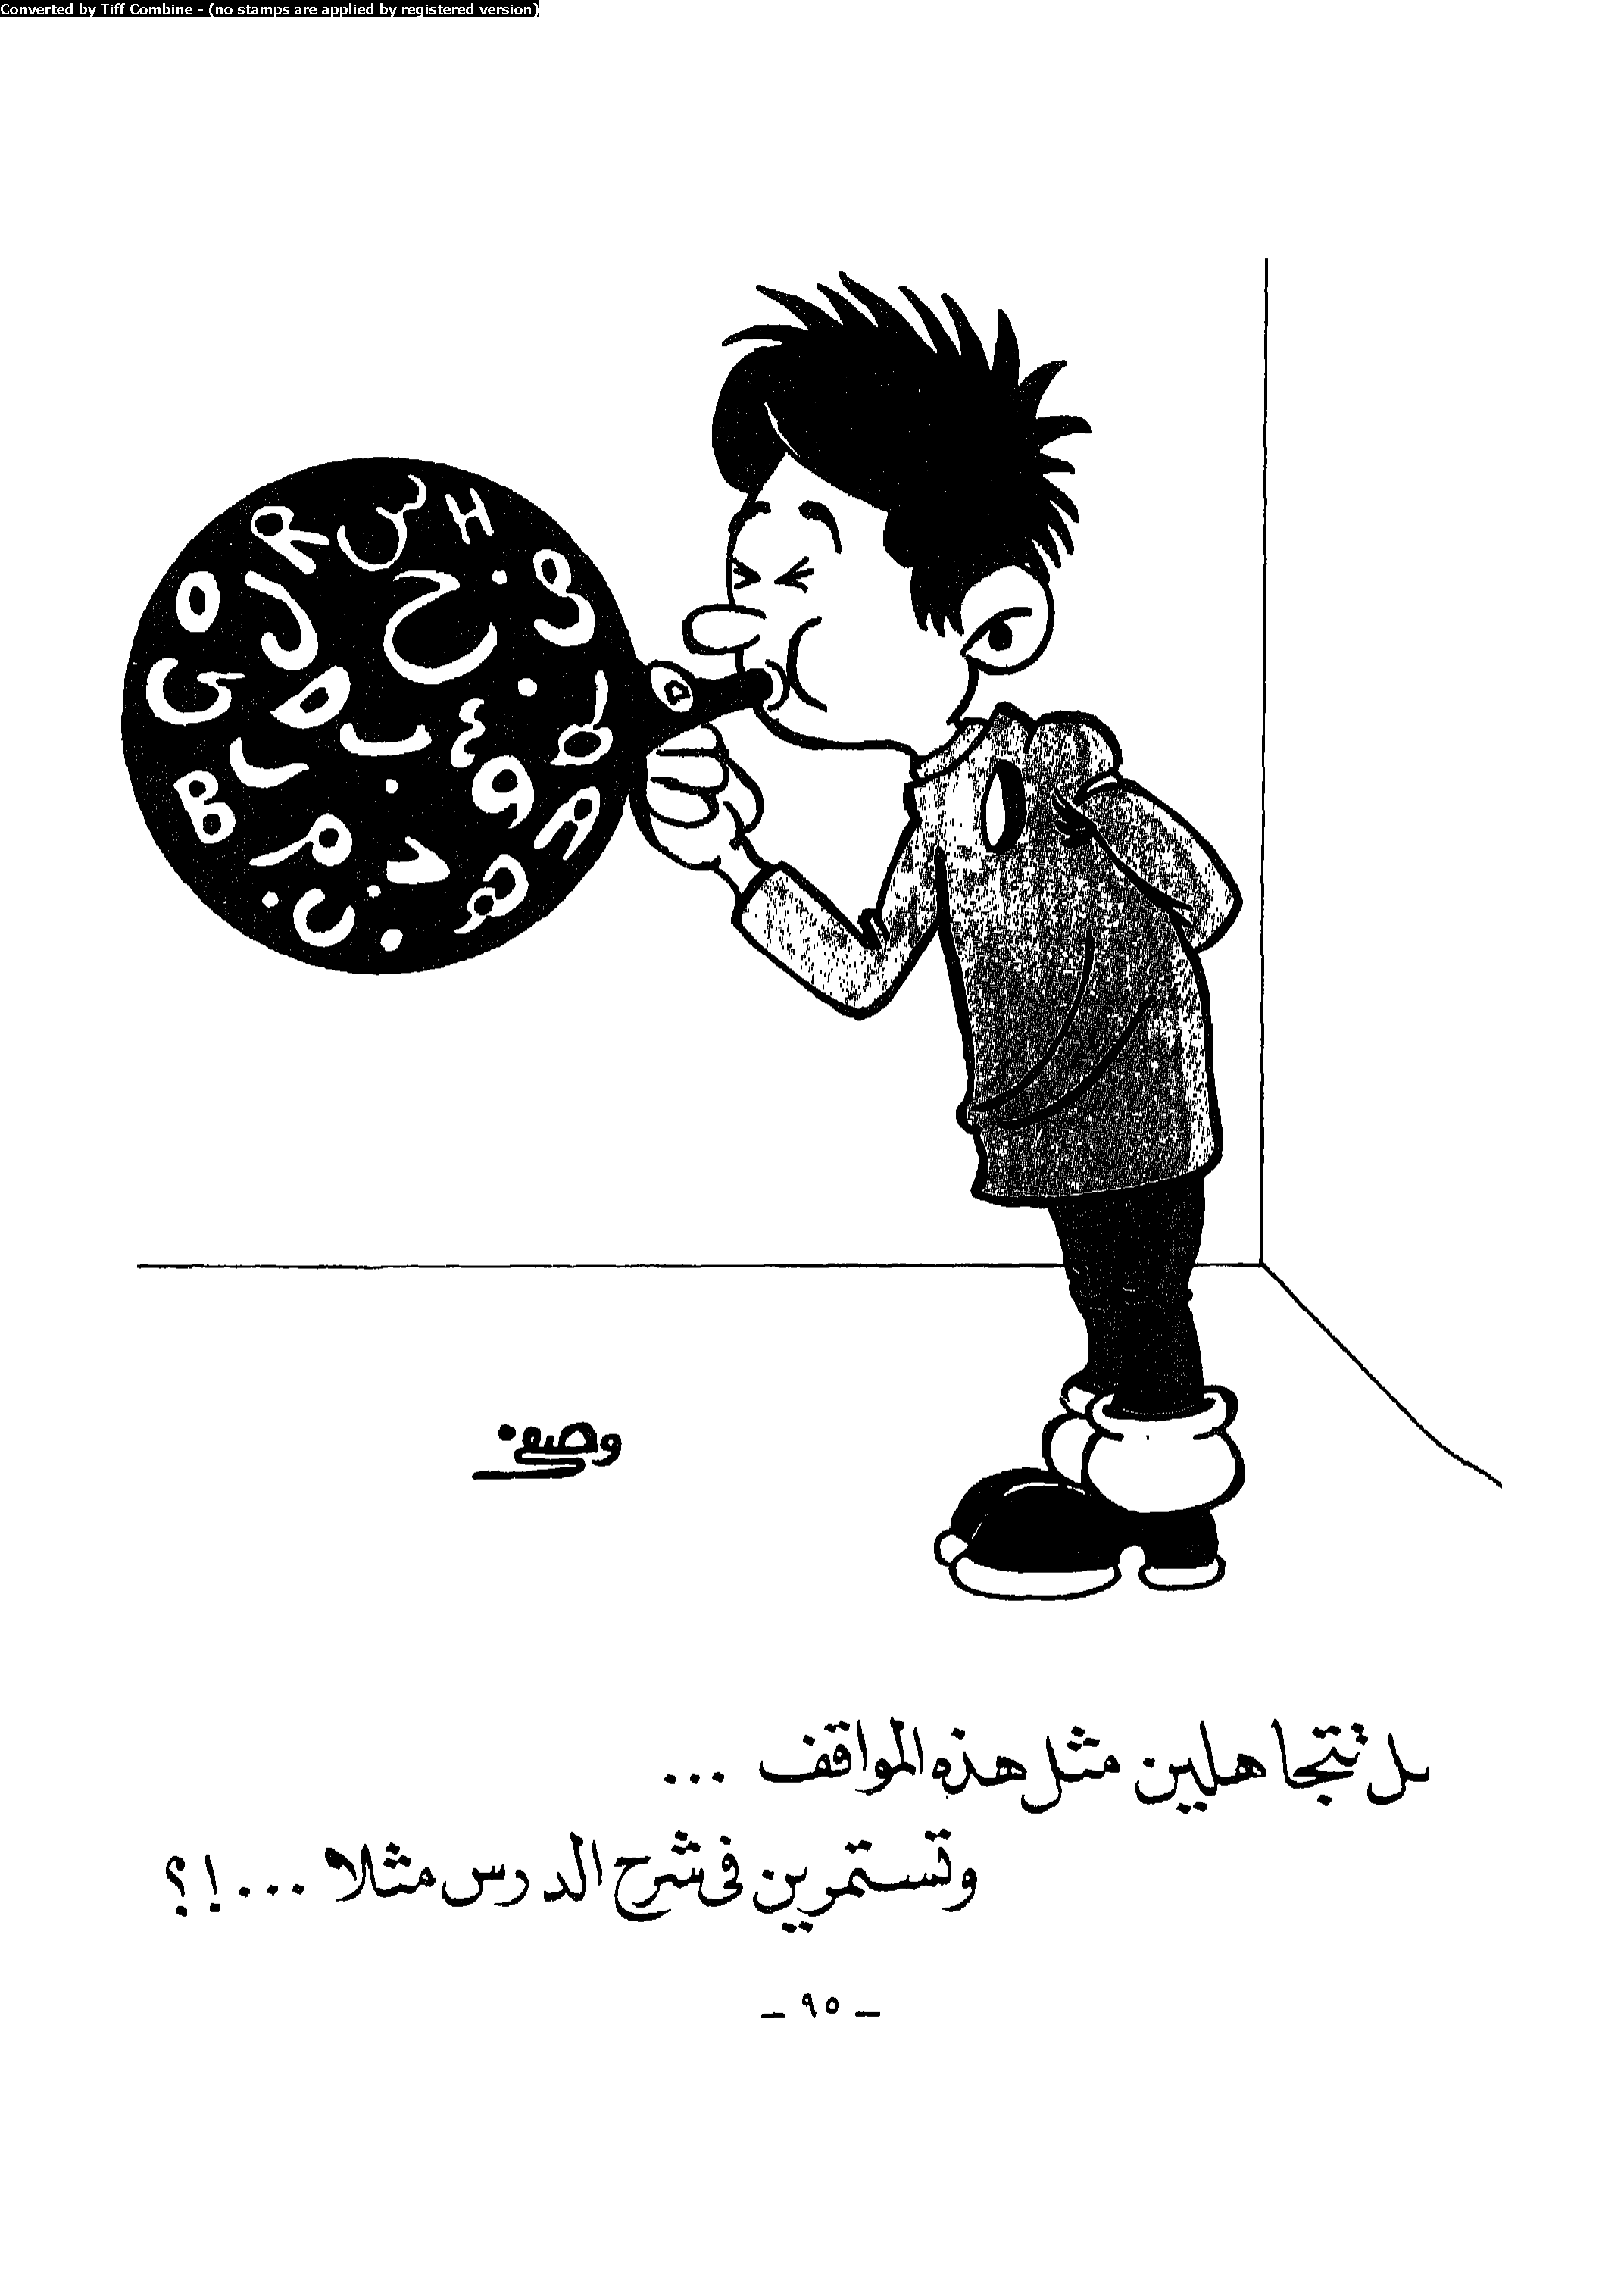 Converted by Tiff Combine - (no stamps are applied by registered version)
R H
O ر ح ف
G
B
وصفى
تتجاهلين مثل هذه المواقف ...
وتستمرين فى شرح الدرس مثلا ...!؟
- ٩٥ -